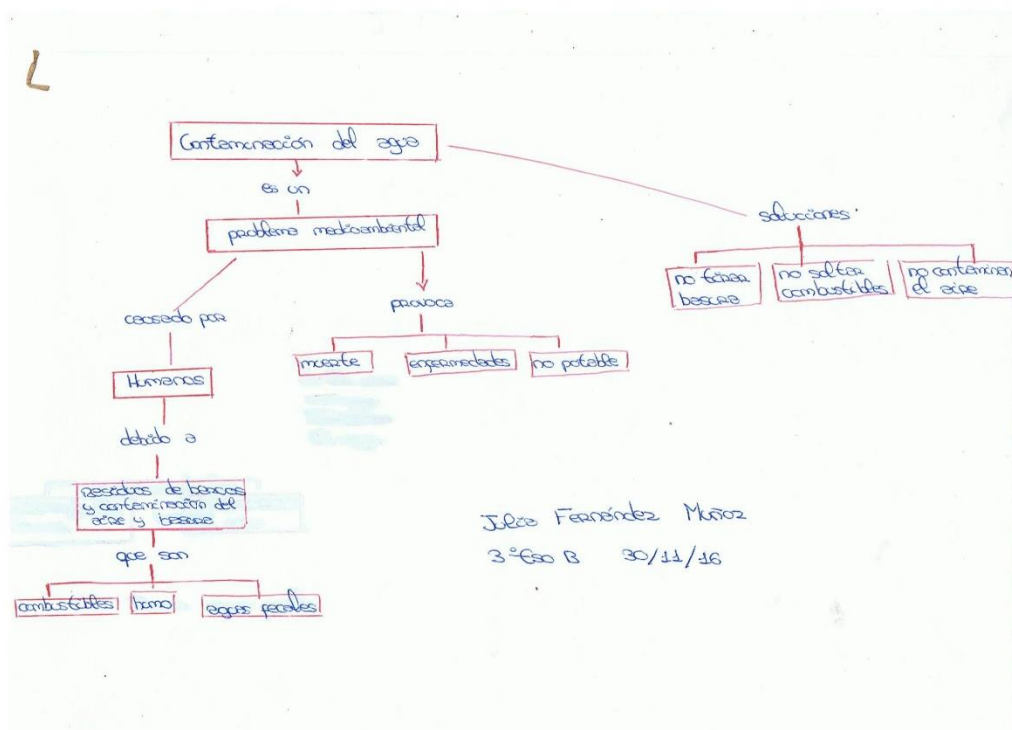 Contaminación del agua
es un
problema medioambiental
causado por
Humanos
debido a
Residuos de barcos
y contaminación del
aire y basura
que son
combustibles
humo
aguas fecales
provoca
muerte
enfermedades
no potable
soluciones
no tirar
basura
no soltar
combustibles
no contaminar
el aire
Julia Fernández Muñoz
3ºEso B 30/11/16